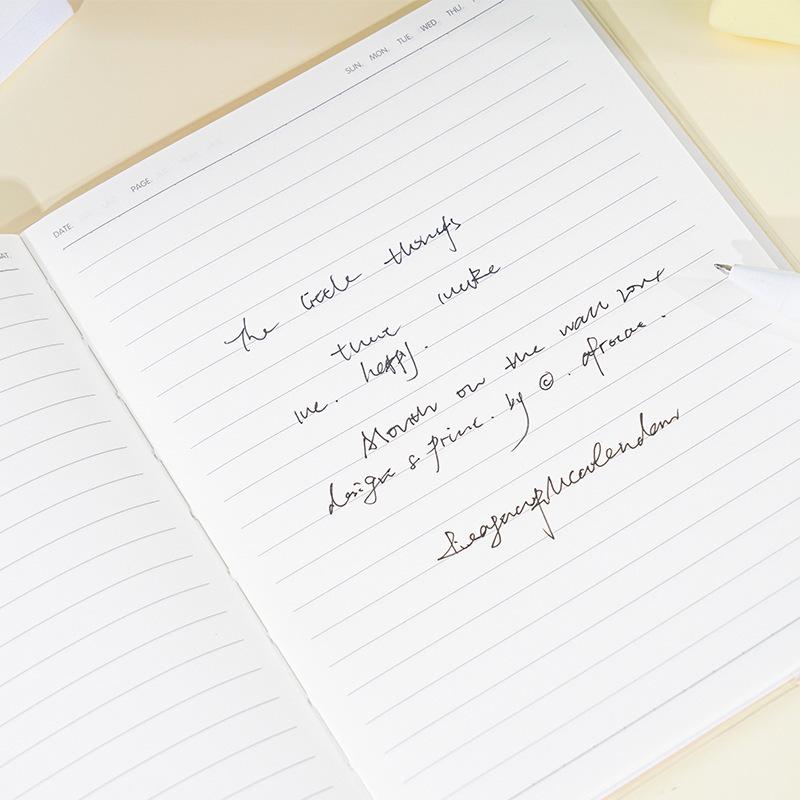 SUN. MON. TUE. WED. THU.
DATE. PAGE.
AT.
The little things
that make
me. happy.
Month on the wall
design & print. by ©.